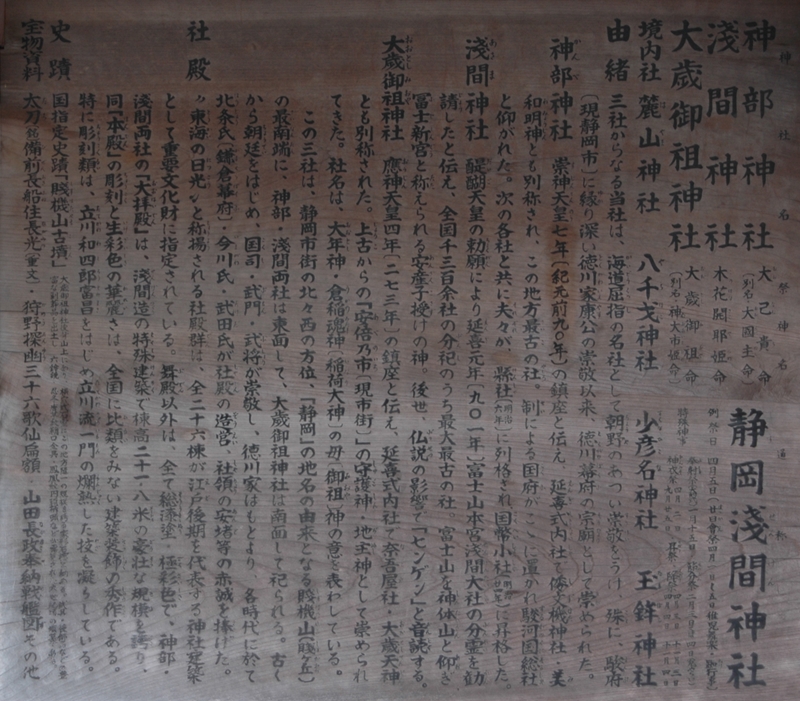 神社名
祭神名
通称
神部神社 大己貴命
(別名 大國主命)
淺間神社 木花開耶姫命
大歳御祖神社 大歳御祖命
(別名 神大市姫命)
靜岡淺間神社
例祭日 四月五日
境内社 麓山神社 八千戈神社 少彦名神社 玉鉾神社
由緒 三社からなる当社は、海道屈指の名社として朝野のあつい崇敬をうけ 殊に、駿府
(現静岡市)に縁り深い徳川家康公の崇敬以来、徳川幕府の宗廟として崇められた。
神部神社 崇神天皇七年(紀元前九〇年)の鎮座と伝え 延喜式内社で倭文機神社・美
和明神とも別称され、この地方最古の社。制による国府がここに置かれ駿河国総社
と仰がれた。次の各社と共に夫々が、縣社に列格され国幣小社に昇格した。
淺間神社 醍醐天皇の勅願により延喜元年(九〇一年)富士山本宮浅間大社の分霊を勧
請したと伝え、全国千三百余社の分祀のうち最大最古の社。富士山を神体山と仰ぎ
冨士新宮と称えられる安産子授けの神。後世、仏説の影響で「センゲン」と音読する。
大歳御祖神社 應神天皇四年(二七三年)の鎮座と伝え、延喜式内社で奈吾屋社・大歳天神
とも別称された。上古からの「安倍乃市(現市街)」の守護神、地主神として崇められ
てきた。社名は、大年神・倉稲魂神(稲荷大神)の母(御祖)神の意を表わしている。
この三社は、静岡市街の北々西の方位、「静岡」の地名の由来となる賤機山(賤ヶ丘)
の最南端に、神部・浅間両社は東面して、大歳御祖神社は南面して祀られる。古く
から朝廷をはじめ、国司・武門・武将が崇敬し、徳川家はもとより、各時代に於て
北条氏(鎌倉幕府)・今川氏・武田氏が社殿の造営、社領の安堵等の赤誠を捧げた。
社殿 〃東海の日光〃と称揚される社殿群は、全二十六棟が江戸後期を代表する神社建築
として重要文化財に指定されている。舞殿以外は、全て総漆塗、極彩色で、神部・
浅間両社の「大拝殿」は、浅間造の特殊建築で棟高二十一・八米の豪壮な規模を誇り、
同「本殿」の彫刻と生彩色の華麗さは、全国に比類をみない建築装飾の秀作である。
特に彫刻類は、立川和四郎富昌をはじめ立川流一門の爛熟した技を凝らしている。
史蹟 国指定史蹟「賤機山古墳」
宝物資料 太刀 銘備前長船住長光(重文)・狩野探幽三十六歌仙扁額 山田長政奉納戦艦図 その他